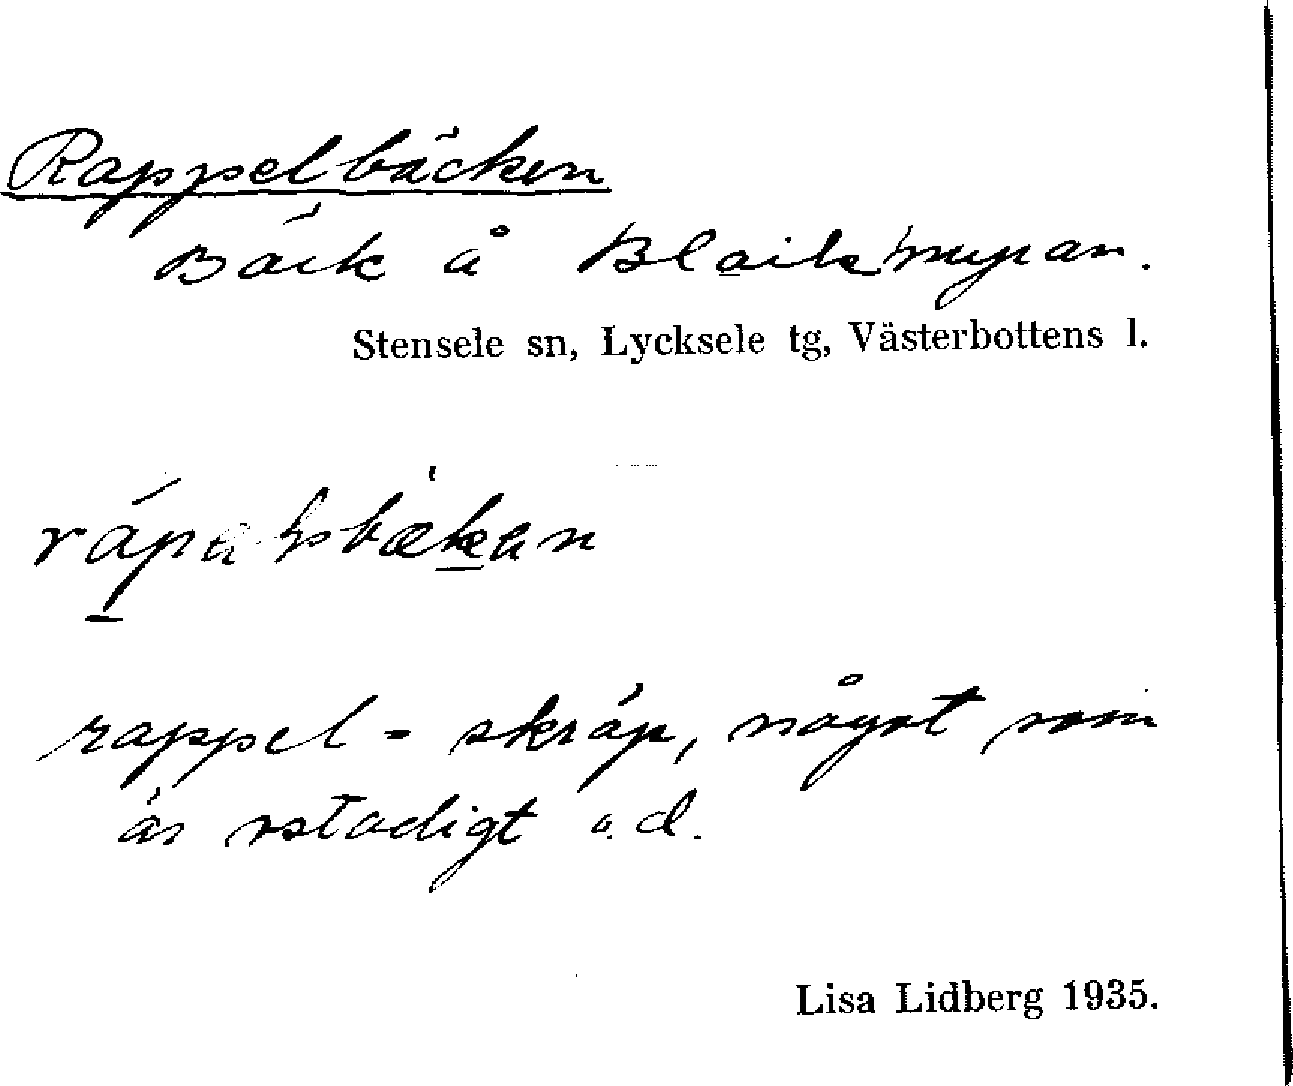 Rappelbäcken
Bäck å Blaikmyran.
Stensele sn, Lycksele tg, Västerbottens l.
rappel - skräp, något som
är ostadigt o.d.
Lisa Lidberg 1935.